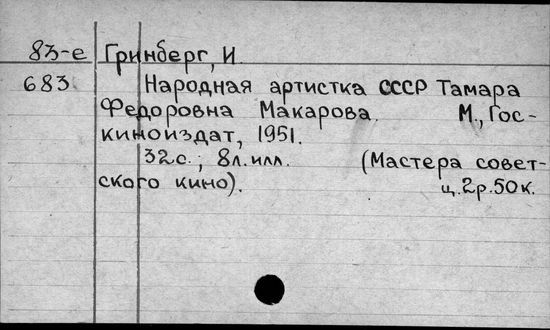 83-е Гринберг, И.
683 Народная артистка СССР Тамара
Федоровна Макарова. М., Гос-
киноиздат, 1951.
32с.; 8л.илл. (Мастера совет-
ского кино). ц.2р.50к.